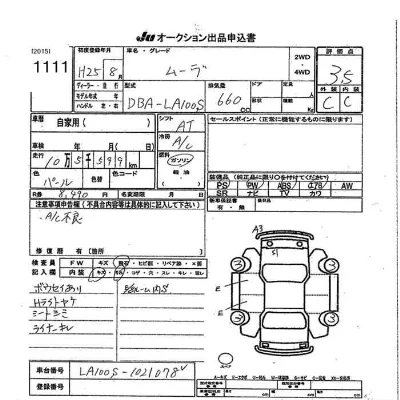 JU オークション出品申込書
[2015]
1111
初度登録年月
H25 8月
車名・グレード
ムーヴ
2WD
・
4WD
評価点
3.5
ディーラー・並行
モデル年式
ハンドル 右・左
型式
DBA-LA100S
排気量
660 CC
ドア
定員
外装 内装
C C
車歴
自家用( )
シフト
AT
冷房
A/C
車検 年 月 日
走行
10万5千599 km
ガソリン
軽油
セールスポイント(正常に機能するものに限ります)
色
パール
色替
色コード
R券 8,490 名変期限 月 日
装備品(純正品に限り○を付けてください)
PS PW ABS エアB AW
SR ナビ TV カワ
新車保証書
有・無
注意事項申告欄(不具合内容等は具体的に記入して下さい)
A/C不良
修復歴 有(箇所 )
検査員
記入欄
FW
キズ
内装
ボウセイあり
Hライトヤケ
シートシミ
ライナーキレ
A3
S1
E
E
車台番号
LA100S-1021078
登録番号